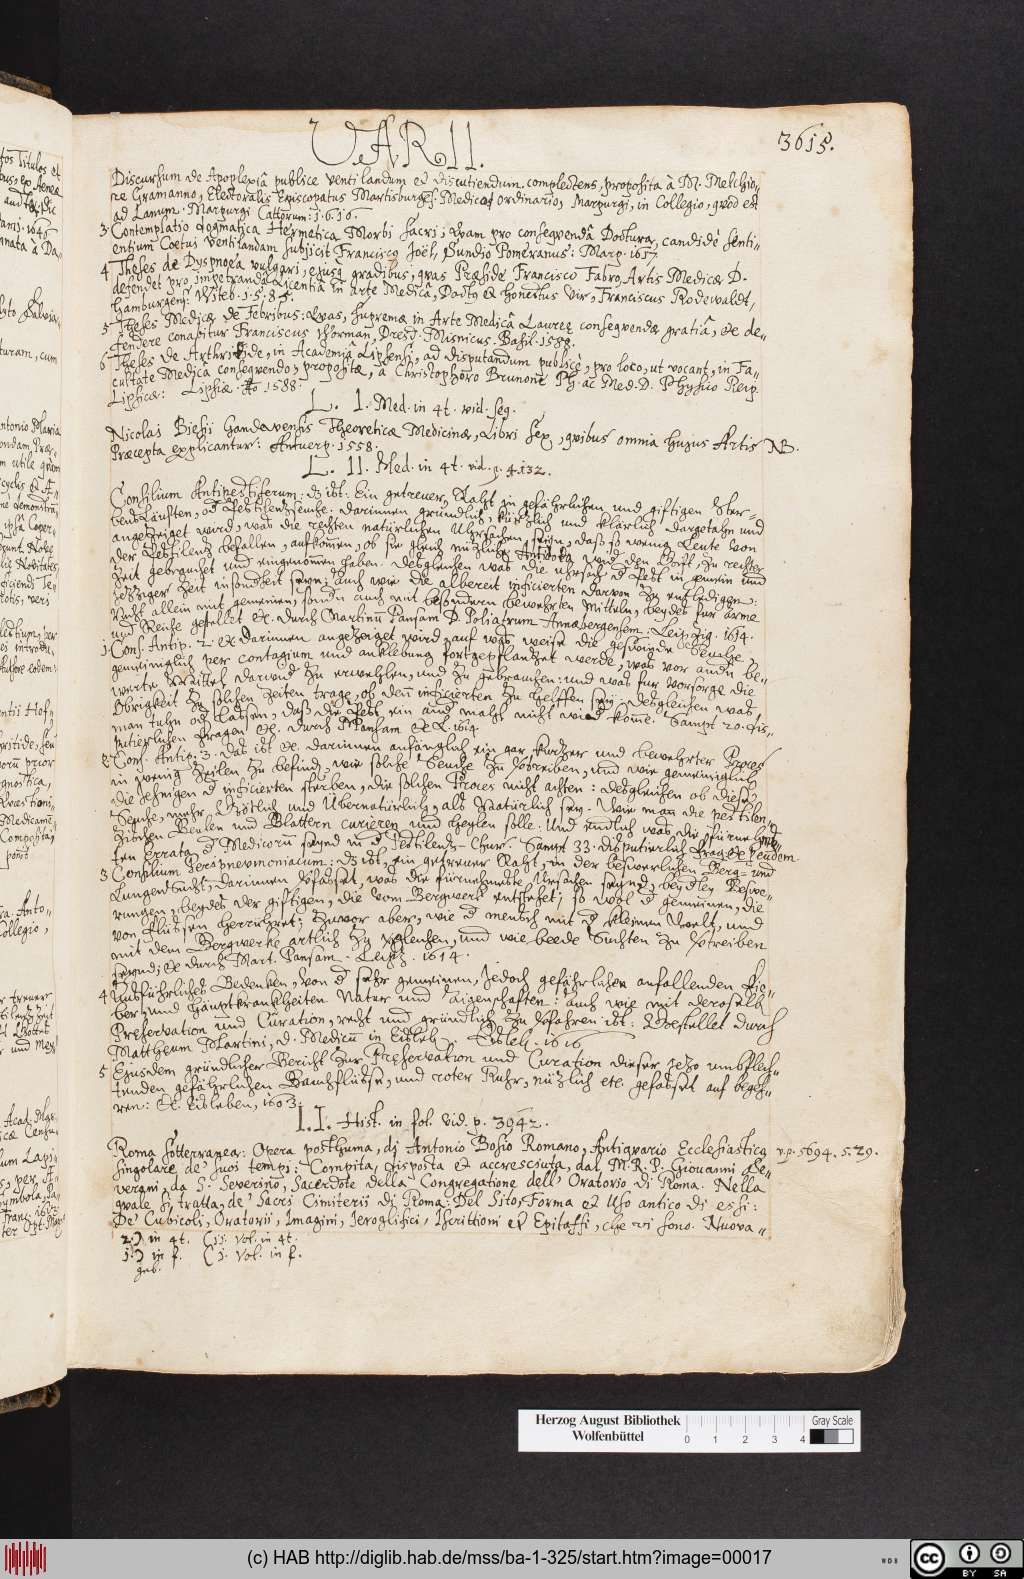 VARII.
3615.
Discursum de Apoplexiâ publice ventilandum et discutiendum complectens, proposita à M. Melchio-
re Gramanno, Electoralis Episcopatus Martisburg: Medico ordinario, Marpurgi, in Collegio, quod est
ad Lanum. Marpurgi Cattorum: 1616.
3 Contemplatio dogmatica Hermetica Morbi sacri; Quam pro consequendâ Doctura, candidè senti-
entium Coetui ventilandam subjicit Franciscq Joël, Sundio Pomeranus: Marp. 1617
4 Theses de Dyspnoea vulgari, ejusq gradibus, quas Præside Francisco Fabro, Artis Medicæ D.
defendet pro impetranda Licentia in arte Medicâ, Doctq & honestus vir, Franciscus Rodewaldt,
Hamburgens: Witeb. 1585.
5 Theses Medicæ de Febribus: Quas, supremæ in Arte Medicâ Laureæ consequendæ gratiâ, et de-
fendere conabitur Franciscus Thorman, Dresd. Misnicus. Basil. 1588.
6 Theses de Arthritide, in Academiâ Lipsensi, ad disputandum publicè, pro loco, ut vocant, in Fa-
cultate Medica consequendo, propositæ, à Christophoro Brunone Ph. ac Med. D. Physico Reip.
Lipsicæ: Lipsiæ. Ao 1588.
L. I. Med. in 4t. vid. seq.
Nicolai Biesii Gandavensis Theoreticæ Medicinæ, Libri sex, quibus omnia hujus Artis NB.
Præcepta explicantur: Antwerp. 1558.
L. II. Med. in 4t. vid. p. 4132.
Consilium Antipestiferum: dz ist: Ein getrewer Raht in gefährlichen und giftigen Ster-
bensläufften, od Pestilentzseuche. darinnen gründlich, kürtzlich und klärlich dargetahn und
angezeiget wird, was die rechten natürlichen Uhrsachen seyn, daß so wenig Leute von
der Pestilentz befallen, aufkommen, ob sie gleich nützliche Antidota wid den Gift, zu rechter
Zeit gebrauchet und eingenommen haben. desgleichen was die uhrsach d Pest in gemein und
jetziger Zeit insondheit seyn: auch wie die albereit inficierten darvon zu entledigen:
Nicht allein mit gemeinen, sondn auch mit besondern bewehrten Mitteln, beydes für arme
und Reiche gestellet &c. durch Martinum Pansam D. Poliatrum Annæbergensem. Leipzig. 1614.
1 Cons. Antip. 2 &c. darinnen angezeiget wird, auf was weise die geschwinde Seuche
gemeiniglich per contagium und anklebung fortgepflantzet werde, was vor andn be-
werte Mittel darwid zu erwehlen, und zu gebrauchen: und was für vorsorge die
Obrigkeit zu solchen Zeiten trage, ob den inficierten zu helffen sey: desgleichen was
man tuhn od lassen, daß die Pest ein and mahl nicht wid kome. Sampt 20. dis-
putierlichen fragen &c. durch M Pansam &c L. 1614.
2 Cons. Antip: 3. das ist &c. darinnen anfänglich ein gar kurtzer und bewehrter Proces
in wenig Zeilen zu befind, wie solche Seuche zu vertreiben, und wie gemeiniglich
die jehnigen d inficierten sterben, die solchen Proces nicht achten: desgleichen ob diese
Seuche, mehr Götlich und Übernatürlich, als Natürlich sey. Wie man die pestilen-
zischen Beulen und Blattern curieren und heylen solle: Und endlich was die fürnehmb-
sten Errata d Medicorum seynd in d Pestilentz-Chur. Sampt 33. disputierlich fragen
3 Consilium Peripneumoniacum: dz ist, ein getrewer Raht, in der beschwerlichen Berg- und
Lungensucht, darinnen verfasset, was die fürnehmbste Ursachen seynd, beydes Beschwe-
rungen, beydes der giftigen, die vom Bergwerk entstehet, so wol d gemeinen, die
von flüssen herrühret; zuvor aber, wie d mensch mit d kleinen Welt, und
mit dem Bergwerke artlich zu vergleichen, und wie beede Suchten zu vertreiben
seynd; &c durch Mart. Pansam. Leipz. 1614.
4 Ausführliches Bedenken, von d sehr gemeinen, jedoch gefährlichen anfallenden Fie-
ber, und hauptkrankheiten Natur und Eigenschaften: auch wie mit derselb
Preservation und Curation, recht und gründlich zu verfahren ist: Gestellet durch
Mattheum Martini, d. Medicum in Eisleb. Eisleb. 1616
5 Ejusdem gründlicher Bericht zur Preservation und Curation dieser jetzo umbschlei-
tenden gefährlichen Bauchflüsse, und roter Ruhr, nützlich etc. gefasset auf begeh-
ren: &c. Eisleben, 1603.
I.I. Hist. in fol. vid. p. 3942.
Roma sotterranea: Opera posthuma, di Antonio Bosio Romano, Antiquario Ecclesiastico v.p. 5694. 5.29.
singolare de' suoi tempi: Compita, disposta et accresciuta, dal M.R.P. Giovanni Se-
verani, da S. Severino, Sacerdote della Congregatione dell' Oratorio di Roma. Nella
quale si tratta, de' Sacri Cimiterii di Roma: Del Sito, Forma et Uso antico di essi:
De' Cubicoli, Oratorii, Imagini, Ieroglifici, Iscrittioni et Epitaffi, che vi sono. Nuova-
2.) in 4t. (11. vol. in 4t.
1.) in f. (1. vol. in f.
Herzog August Bibliothek
Wolfenbüttel
0 1 2 3 4
Gray Scale
(c) HAB http://diglib.hab.de/mss/ba-1-325/start.htm?image=00017
WDB
cc BY SA